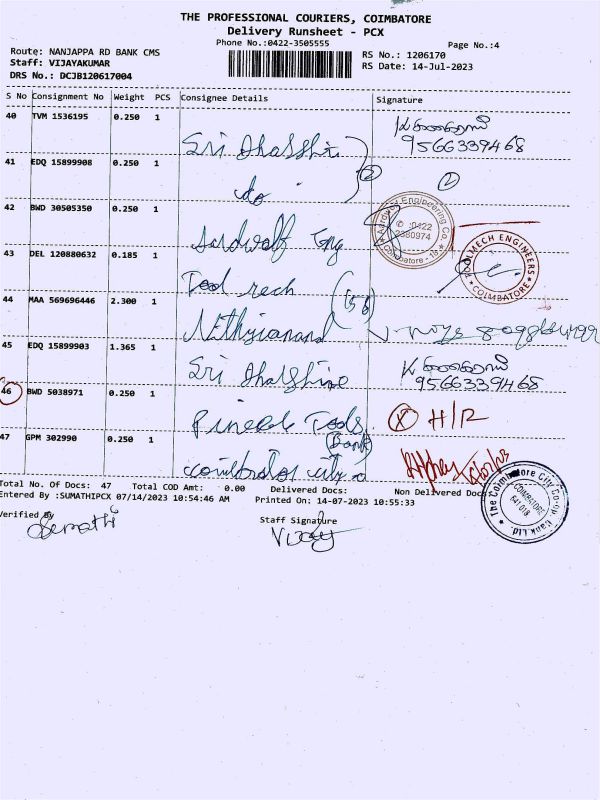 THE PROFESSIONAL COURIERS, COIMBATORE
Delivery Runsheet - PCX
Phone No.:0422-3505555
Page No.:4
Route: NANJAPPA RD BANK CMS
RS No.: 1206170
Staff: VIJAYAKUMAR
RS Date: 14-Jul-2023
DRS No.: DCJB120617004
S No Consignment No Weight PCS Consignee Details Signature
40 TVM 1536195 0.250 1
Sri Dharshini
9566339468
41 EDQ 15899908 0.250 1
do
2
42 BWD 30505350 0.250 1
Aardwolf Eng
Aardwolf Engineering Co.
✆ :0422
2380974
Coimbatore - 18
43 DEL 120880632 0.185 1
Tool Mech
TOOLMECH ENGINEERS
COIMBATORE
44 MAA 569696446 2.300 1
Nithyianand
(56)
45 EDQ 15899903 1.365 1
Sri Dharshini
9566339468
46 BWD 5038971 0.250 1
Tools
X H/R
47 GPM 302990 0.250 1
(Bank)
Coimbatore City
The Coimbatore City Co-op. Bank Ltd.
COIMBATORE
641 018
Total No. Of Docs: 47 Total COD Amt: 0.00 Delivered Docs: Non Delivered Docs
Entered By :SUMATHIPCX 07/14/2023 10:54:46 AM Printed On: 14-07-2023 10:55:33
Verified By
Sumathi
Staff Signature
Vijay